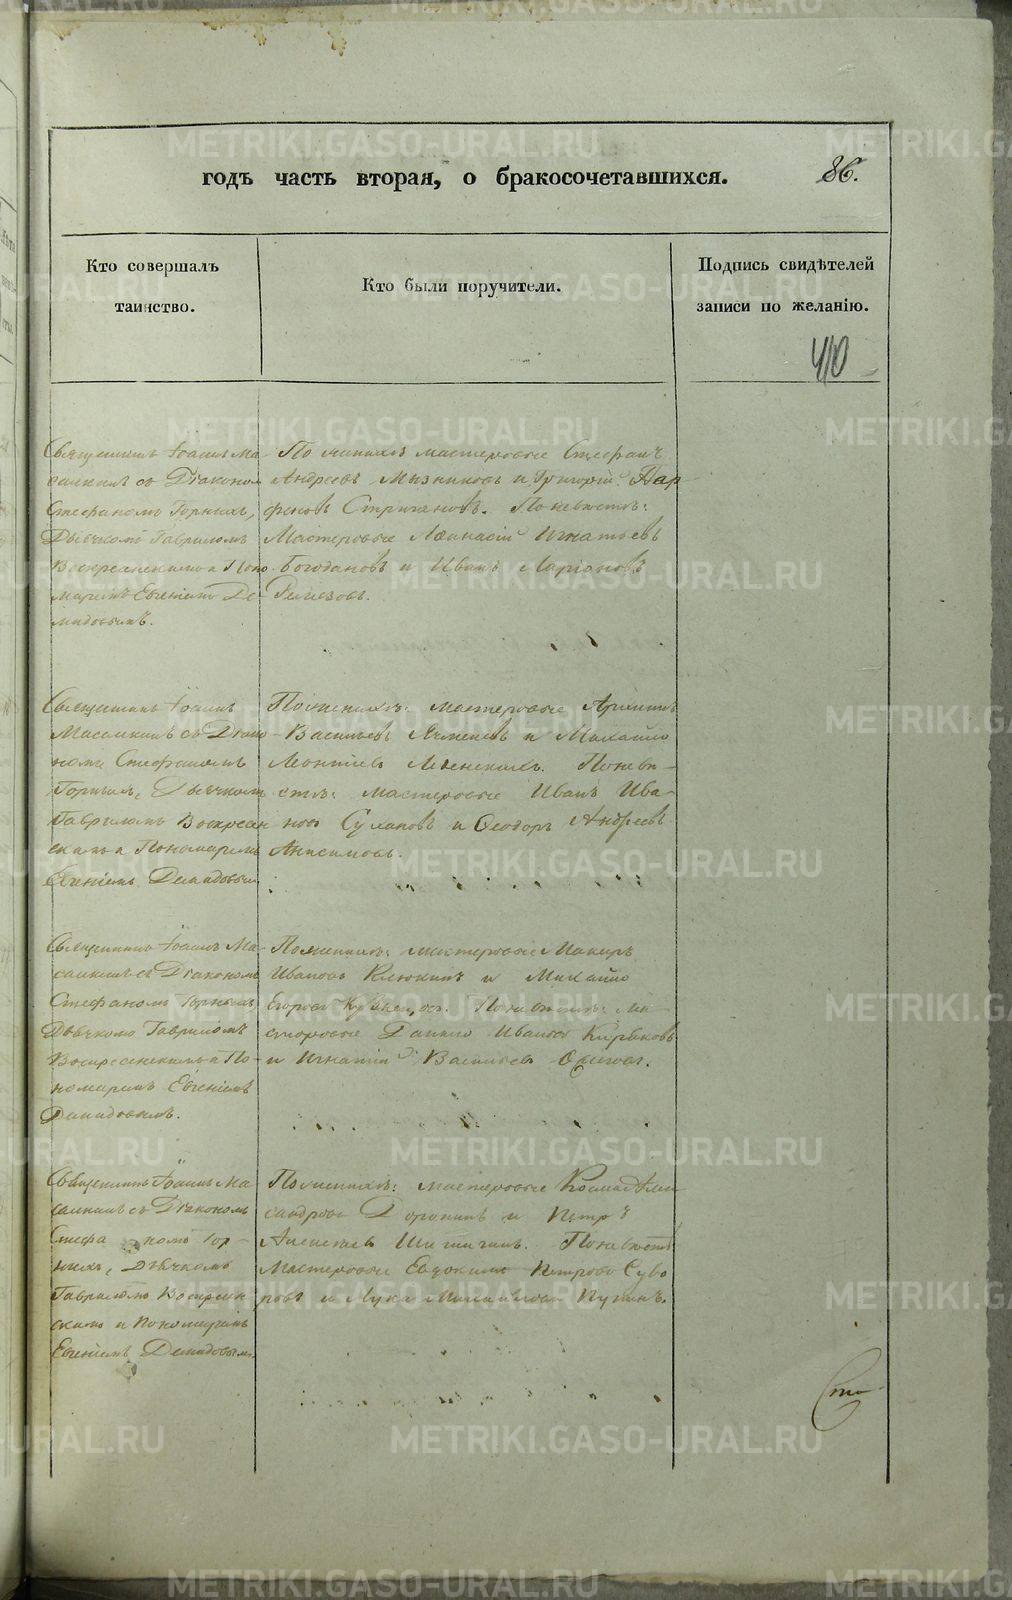 годъ часть вторая, о бракосочетавшихся.
86.
Кто совершалъ
таинство.
Кто были поручители.
Подпись свидѣтелей
записи по желанію.
410
Священникъ Іоаннъ Ма-
салкинъ съ Діаконом
Стефаномъ Горныхъ,
Дьячкомъ Гавриломъ
Воскресенскимъ и Поно
маремъ Евгеніемъ Де-
мидовымъ.
По женихѣ мастеровые Стефанъ
Андреевъ Мызниковъ и Григорій Пар
феновъ Стригановъ. По невѣстѣ:
Мастеровые Аѳанасій Игнатьевъ
Богдановъ и Иванъ Ларіоновъ
Ремезовъ.
Священникъ Іоаннъ
Масалкинъ съ Діако
номъ Стефаномъ
Горныхъ, Дьячкомъ
Гавриломъ Воскресен
скимъ и Пономаремъ
Евгеніемъ Демидовым
По женихѣ: мастеровые
Васильевъ и Михайло
Леонтьевъ По невѣ-
стѣ: мастеровые Иванъ Ива-
новъ Сухановъ и Ѳеодоръ Андреевъ
Анисимовъ.
Священникъ Іоаннъ Ма-
салкинъ съ Діакономъ
Стефаномъ Горныхъ
Дьячкомъ Гавриломъ
Воскресенскимъ и По-
номаремъ Евгеніемъ
Демидовымъ.
По женихѣ: мастеровые
Ивановъ Клюкинъ и Михайло
Егоровъ Кузнецовъ. По невѣстѣ: ма-
стеровые Данило Ивановъ
и Игнатій Васильевъ
Священникъ Іоаннъ Ма
салкинъ съ Діакономъ
Стефаномъ Гор-
ныхъ, Дьячкомъ
Гавриломъ Воскресен-
скимъ и Пономаремъ
Евгеніемъ Демидовым.
По женихѣ: мастеровые Козма Алек
сандровъ Доронинъ и Петръ
Алексѣевъ По невѣстѣ
Мастеровые Евдокимъ Петровъ Суво
ровъ и Лука Михайловъ Путинъ.
METRIKI.GASO-URAL.RU